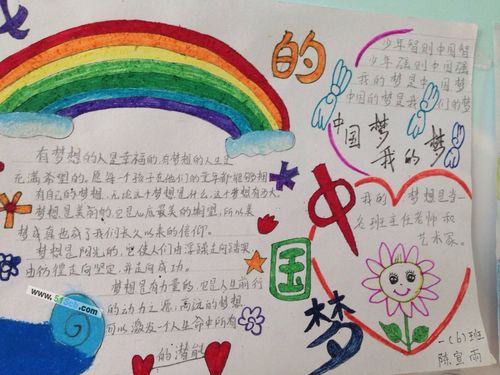 的
少年智则中国智
少年强则中国强
我的梦是中国梦
中国的梦是我们的梦
中国梦
我的梦
有梦想的人是幸福的,有梦想的人生是
充满希望的。愿每一个孩子在他们的童年都能够拥
有自己的梦想,无论这个梦想是什么,这个梦想有多大。
梦想是美丽的,它是心底最美的期望,所以美
梦成真也成了我们长久以来的信仰。
梦想是阳光的,它使人们由浮躁走向踏实
由彷徨走向坚定,并走向成功。
梦想是有力量的,它是人生前行
的动力之源;高远的梦想
可以激发一个人生命中所有
的潜能
中
国
梦
我的梦想是当一
名班主任老师和
艺术家。
一(6)班
陈宣雨